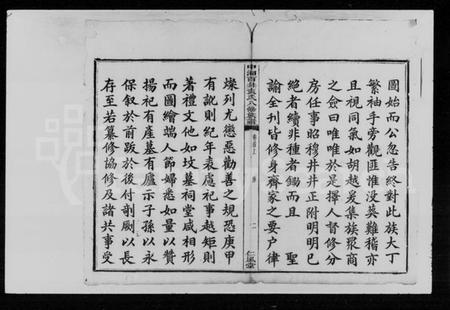 圖始而公忽告終對此族大丁
繁袖手旁觀匪惟没美難稽亦
且視同氣如胡越爰集族眾商
之僉曰唯唯於是擇人督修分
房任事昭穆井井正附明明已
絕者續非種者鋤而且 聖
諭全刊皆修身齊家之要户律
中湘百井朱氏八修族譜
卷首上 序 二 仁風堂
燦列尤懲惡勸善之規恐庚甲
有訛則紀年表慮祀事越矩則
補文禮他如坟墓祠堂咸相形
而圖繪端人節婦悉如量以贊
揚祀有產墓有廬示子孫以永
保敘於首跋於後付剞劂以長
存至若纂修協修及諸共事受